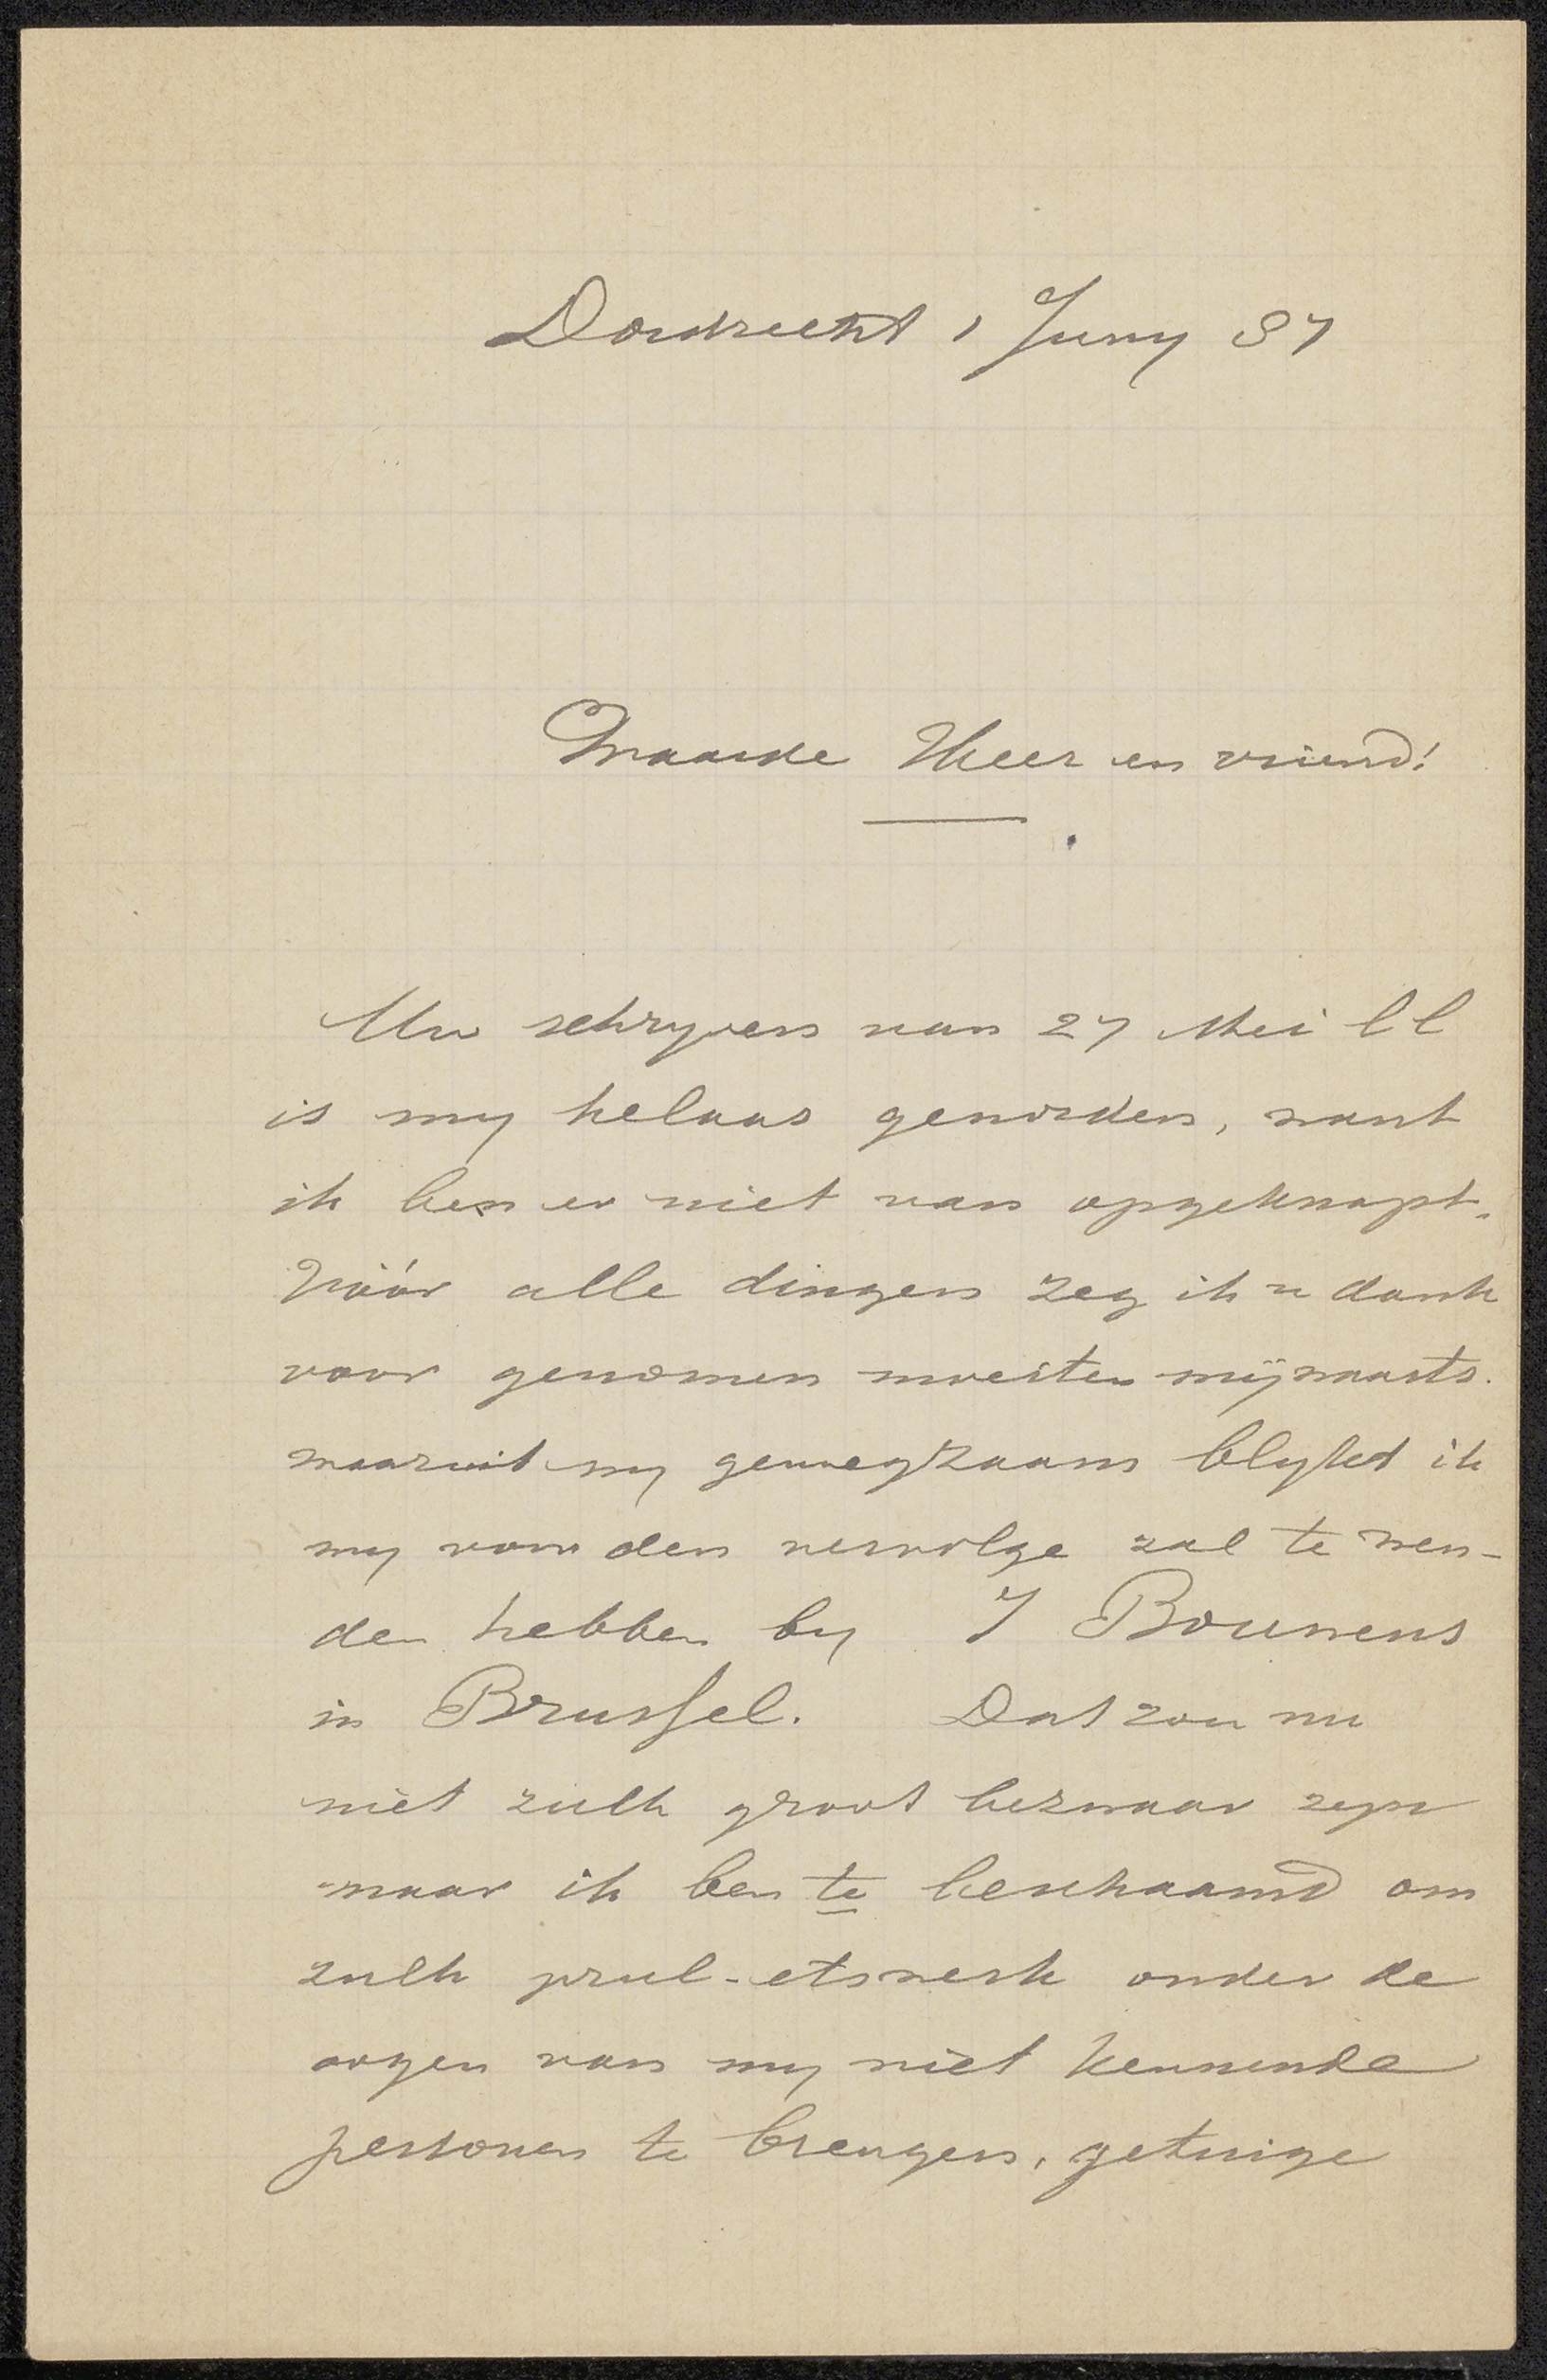 Dordrecht 1 Juny 87
Waarde Heer en vriend!
Uw schryven van 27 Mei ll
is my helaas geworden, want
ik ben er niet van opgeknapt.
Vóór alle dingen zeg ik u dank
voor genomen moeiten mijwaarts.
waaruit my genoegzaam blykt ik
my voor den vervolge zal te wen-
den hebben by J Bouwens
in Brussel. Dat zou nu
niet zulk groot bezwaar zyn
maar ik ben te beschaamd om
zulk prul-etswerk onder de
oogen van my niet kennende
personen te brengen, getuige